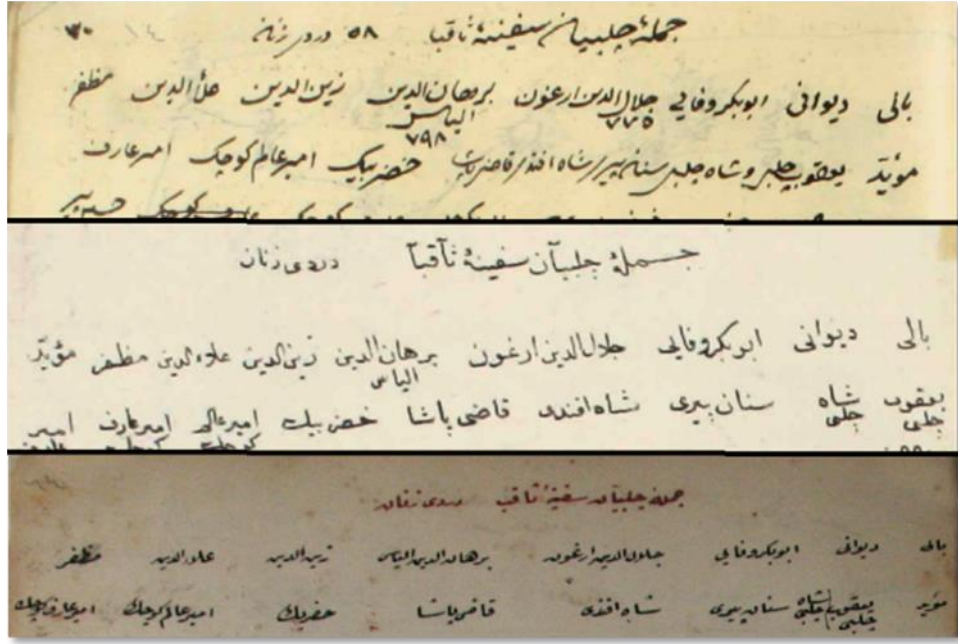 جملهٔ چلبیان سفینهٔ ثاقبا ٥٨ ٣٠
بالی دیوانی ابوبکروفایی جلال الدین ارغون برهان الدین زین الدین علاالدین مظفر
٧٧٥ الیاس
٧٩٨
مؤید یعقوب چلبی وشاه چلبی سنان پیری شاه افندی قاضی پاشا خضر بیک امیر عالم کوچک امیر عارف
جملهٔ چلبیآن سفینهٔ ثآقبآ دردی زنان
بالی دیوانی ابوبکروفایی جلال الدین ارغون برهان الدین زین الدین علاء الدین مظفر مؤید
الیاس
یعقوب چلبی شاه چلبی سنان پیری شاه افندی قاضی پاشا خضر بیک امیر عالم امیر عارف امیر
جملهٔ چلبیان سفینهٔ ثاقب دردی زنان
بالی دیوانی ابوبکروفایی جلال الدین ارغون برهان الدین الیاس زین الدین علاء الدین مظفر
مؤید یعقوب چلبی شاه چلبی سنان پیری شاه افندی قاضی پاشا خضر بیک امیر عالم کوچک امیر عارف کوچک